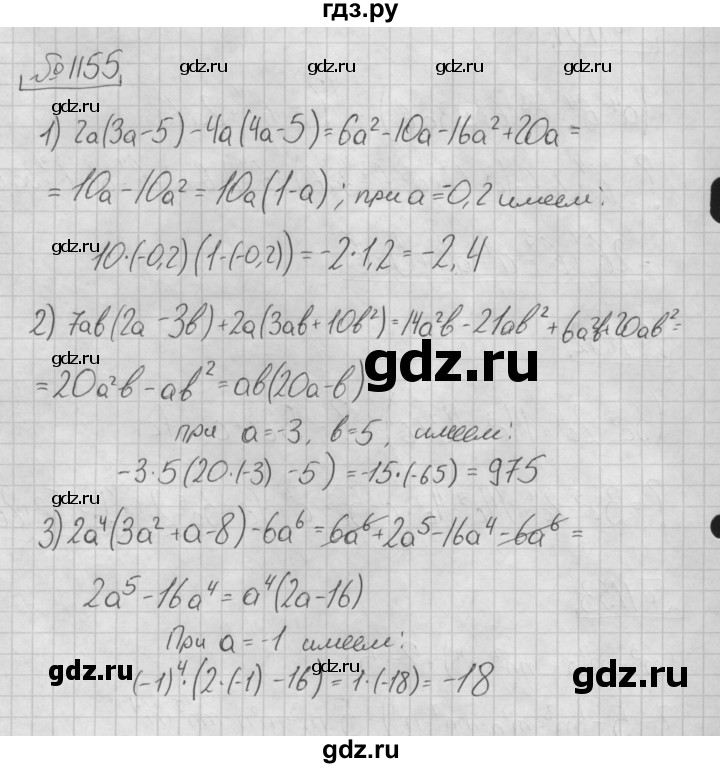 гдз.ру
№ 1155
gdz.ru gdz.ru gdz.ru gdz.ru
gdz.ru
1) 2a(3a-5)-4a(4a-5)=6a²-10a-16a²+20a=
=10a-10a²=10a(1-a); при a=-0,2 имеем:
gdz.ru
10·(-0,2)(1-(-0,2))=-2·1,2=-2,4
2) 7ab(2a-3b)+2a(3ab+10b²)=14a²b-21ab²+6a²b+20ab²=
gdz.ru
gdz.ru
=20a²b-ab²=ab(20a-b)
при a=-3, b=5, имеем:
-3·5(20·(-3)-5)=-15·(-65)=975
gdz.ru
3) 2a⁴(3a²+a-8)-6a⁶=6a⁶+2a⁵-16a⁴-6a⁶=
2a⁵-16a⁴=a⁴(2a-16)
При a=-1 имеем:
gdz.ru gdz.ru gdz.ru
(-1)⁴·(2·(-1)-16)=1·(-18)=-18
gdz.ru